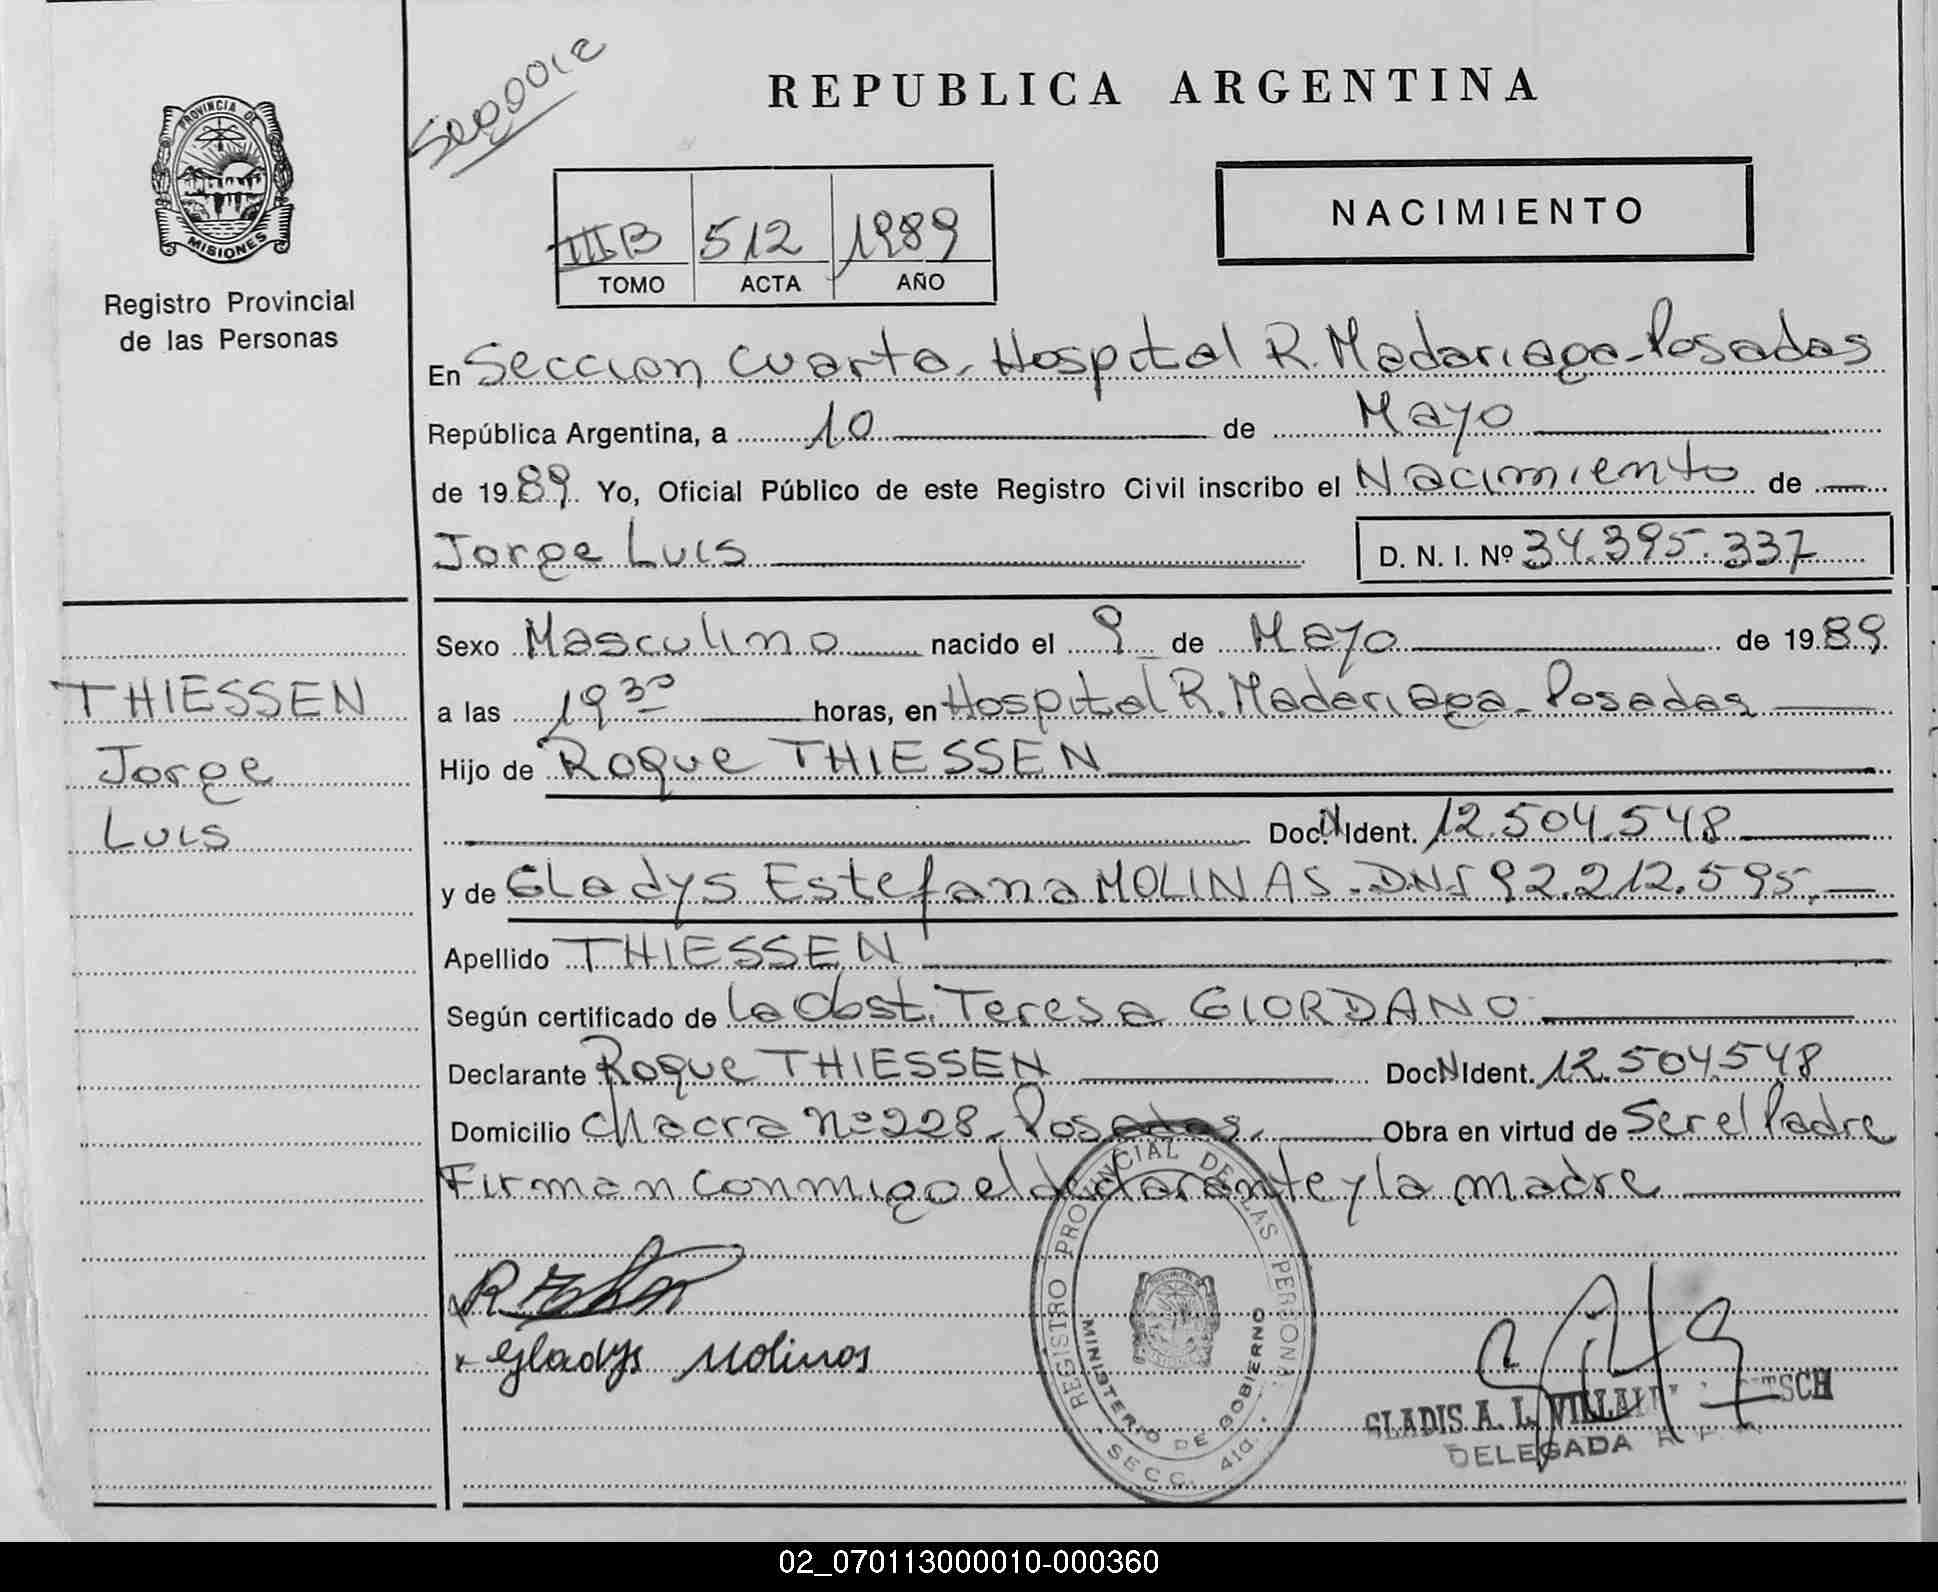 PROVINCIA DE
MISIONES
Registro Provincial
de las Personas
REPUBLICA ARGENTINA
NACIMIENTO
III B 512 1989
TOMO ACTA AÑO
En Seccion Cuarta, Hospital R. Madariaga - Posadas
República Argentina, a 10 de Mayo
de 1989. Yo, Oficial Público de este Registro Civil inscribo el Nacimiento de
Jorge Luis D. N. I. Nº 34.395.337
Sexo Masculino nacido el 9 de Mayo de 1989.
a las 19 30 horas, en Hospital R. Madariaga - Posadas
Hijo de Roque THIESSEN
Doc. N Ident. 12.504.548
y de Gladys Estefana MOLINAS - DNI 92.212.595,
Apellido THIESSEN
Según certificado de la Obst. Teresa GIORDANO
Declarante Roque THIESSEN Doc N Ident. 12.504.548
Domicilio Chacra Nº 228 - Posadas, Obra en virtud de Ser el Padre
Firman conmigo el declarante y la madre
THIESSEN
Jorge
Luis
Gladys Molinas
REGISTRO PROVINCIAL DE LAS PERSONAS
MINISTERIO DE GOBIERNO
SECC. 4ta.
GLADIS A. L.
DELEGADA
02_070113000010-000360